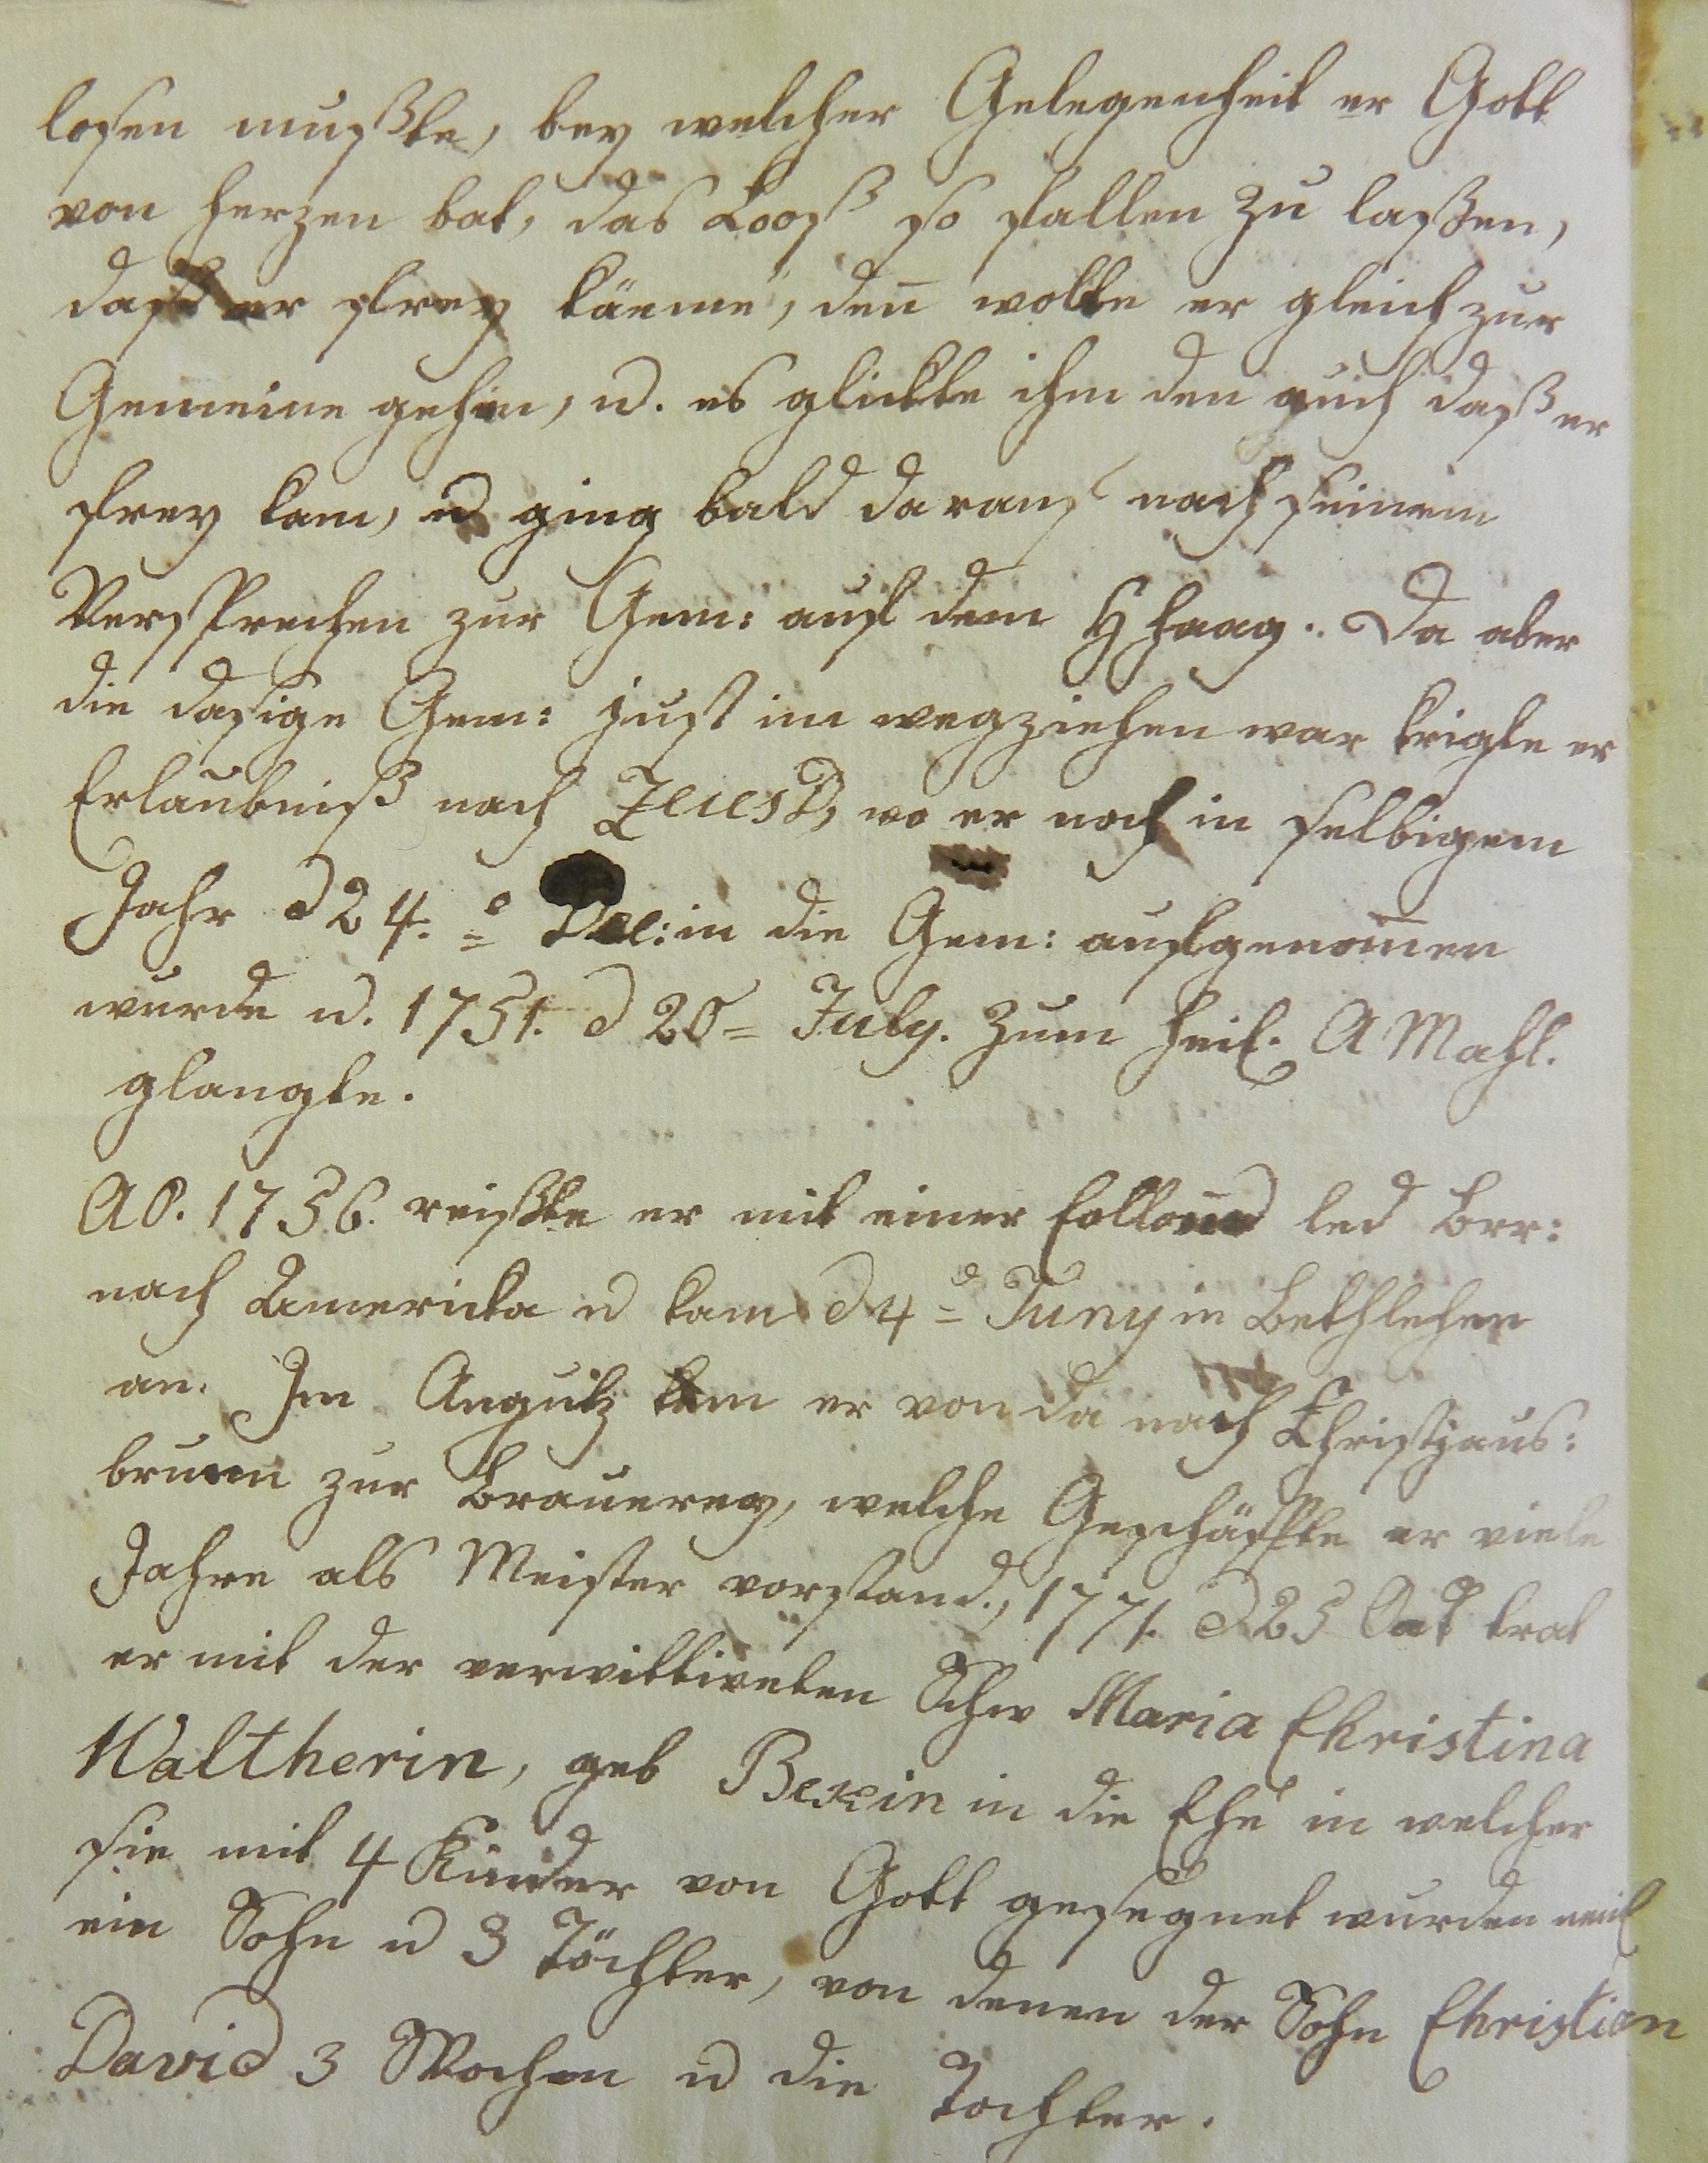 losen mußte, bey welcher Gelegenheit er Gott
von Herzen bat, das Looß so fallen zu laßen,
daß er frey käeme, den̄ wolte er gleich zur
Gemeine gehen, u. es glickte ihm den auch daß er
frey kam, u ging bald darauf nach seinem
Versprechen zur Gem: auf dem HHaag. Da aber
die dasige Gem: just im wegziehen war krigte er
Erlaubniß nach Zeüst, wo er noch in selbigem
Jahr d 24. Dec: in die Gem: aufgenom̄en
wurde u. 1751. d 20 July. zum heil. AMahl.
glangte.
Ao. 1756. reißte er mit einer led Brr:
nach Americka u kam d 4 Juny in Bethlehem
an. Im Augustz kam er von da nach Christians:
brunn zur Brauerey, welche Geschäffte er viele
Jahre als Meister vorstand, 1771. d 25 Oct trat
er mit der verwittweten Schw Maria Christina
Waltherin, geb in die Ehe in welcher
sie mit 4 Kinder von Gott gesegnet wurden neml
ein Sohn u 3 Töchter, von denen der Sohn Christian
David 3 Wochen u die Tochter.